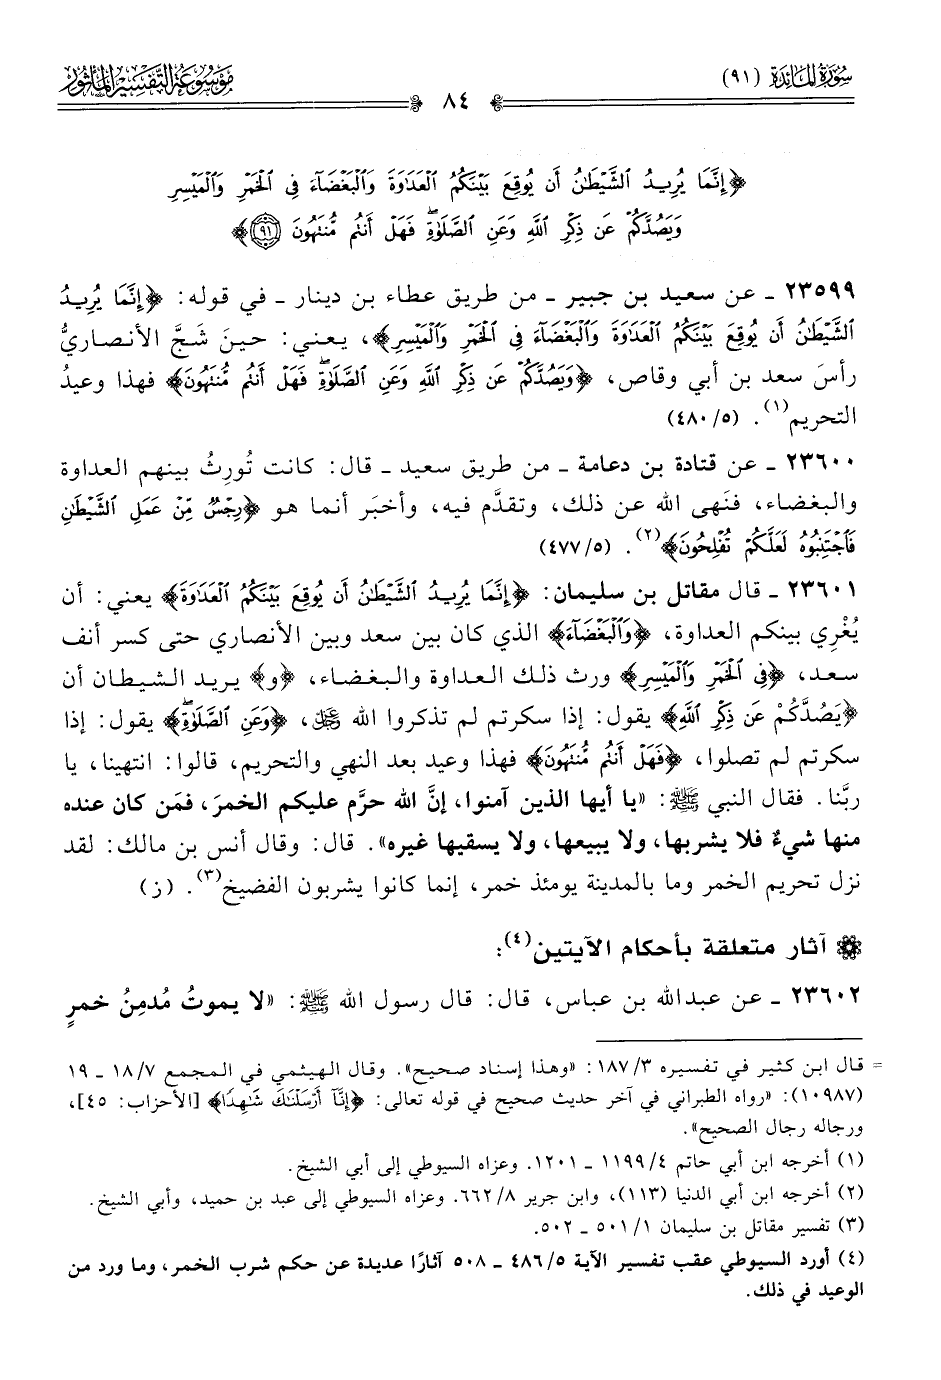 سُورَةُ المَائِدَة (٩١)
٨٤
مَوْسُوعَةُ التَّفْسِيرِ المَأْثُور
﴿إِنَّمَا يُرِيدُ ٱلشَّيْطَٰنُ أَن يُوقِعَ بَيْنَكُمُ ٱلْعَدَٰوَةَ وَٱلْبَغْضَآءَ فِي ٱلْخَمْرِ وَٱلْمَيْسِرِ
وَيَصُدَّكُمْ عَن ذِكْرِ ٱللَّهِ وَعَنِ ٱلصَّلَوٰةِۖ فَهَلْ أَنتُم مُّنتَهُونَ ٩١﴾
٢٣٥٩٩ ـ عن سعيد بن جبير ـ من طريق عطاء بن دينار ـ في قوله: ﴿إِنَّمَا يُرِيدُ
ٱلشَّيْطَٰنُ أَن يُوقِعَ بَيْنَكُمُ ٱلْعَدَٰوَةَ وَٱلْبَغْضَآءَ فِي ٱلْخَمْرِ وَٱلْمَيْسِرِ﴾، يعني: حينَ شَجَّ الأنصاريُّ
رأسَ سعد بن أبي وقاص، ﴿وَيَصُدَّكُمْ عَن ذِكْرِ ٱللَّهِ وَعَنِ ٱلصَّلَوٰةِۖ فَهَلْ أَنتُم مُّنتَهُونَ﴾ فهذا وعيدُ
التحريم(١). (٤٨٠/٥)
٢٣٦٠٠ ـ عن قتادة بن دعامة ـ من طريق سعيد ـ قال: كانت تُورِثُ بينهم العداوة
والبغضاء، فنَهى الله عن ذلك، وتقدَّم فيه، وأخبَر أنما هو ﴿رِجْسٌ مِّنْ عَمَلِ ٱلشَّيْطَٰنِ
فَٱجْتَنِبُوهُ لَعَلَّكُمْ تُفْلِحُونَ﴾(٢). (٤٧٧/٥)
٢٣٦٠١ ـ قال مقاتل بن سليمان: ﴿إِنَّمَا يُرِيدُ ٱلشَّيْطَٰنُ أَن يُوقِعَ بَيْنَكُمُ ٱلْعَدَٰوَةَ﴾ يعني: أن
يُغْري بينكم العداوة، ﴿وَٱلْبَغْضَآءَ﴾ الذي كان بين سعد وبين الأنصاري حتى كسر أنف
سعد، ﴿فِي ٱلْخَمْرِ وَٱلْمَيْسِرِ﴾ ورث ذلك العداوة والبغضاء، ﴿و﴾ يريد الشيطان أن
﴿يَصُدَّكُمْ عَن ذِكْرِ ٱللَّهِ﴾ يقول: إذا سكرتم لم تذكروا الله ﷿، ﴿وَعَنِ ٱلصَّلَوٰةِۖ﴾ يقول: إذا
سكرتم لم تصلوا، ﴿فَهَلْ أَنتُم مُّنتَهُونَ﴾ فهذا وعيد بعد النهي والتحريم، قالوا: انتهينا، يا
ربَّنا. فقال النبي ﷺ: «يا أيها الذين آمنوا، إنَّ الله حرَّم عليكم الخمرَ، فمَن كان عنده
منها شيءٌ فلا يشربها، ولا يبيعها، ولا يسقيها غيره». قال: وقال أنس بن مالك: لقد
نزل تحريم الخمر وما بالمدينة يومئذ خمر، إنما كانوا يشربون الفضيخ(٣). (ز)
آثار متعلقة بأحكام الآيتين(٤):
٢٣٦٠٢ ـ عن عبدالله بن عباس، قال: قال رسول الله ﷺ: «لا يموتُ مُدمِنُ خمرٍ
= قال ابن كثير في تفسيره ١٨٧/٣: «وهذا إسناد صحيح». وقال الهيثمي في المجمع ١٨/٧ ـ ١٩
(١٠٩٨٧): «رواه الطبراني في آخر حديث صحيح في قوله تعالى: ﴿إِنَّآ أَرْسَلْنَٰكَ شَٰهِدًا﴾ [الأحزاب: ٤٥]،
ورجاله رجال الصحيح».
(١) أخرجه ابن أبي حاتم ١١٩٩/٤ ـ ١٢٠١. وعزاه السيوطي إلى أبي الشيخ.
(٢) أخرجه ابن أبي الدنيا (١١٣)، وابن جرير ٦٦٢/٨. وعزاه السيوطي إلى عبد بن حميد، وأبي الشيخ.
(٣) تفسير مقاتل بن سليمان ٥٠١/١ ـ ٥٠٢.
(٤) أورد السيوطي عقب تفسير الآية ٤٨٦/٥ ـ ٥٠٨ آثارًا عديدة عن حكم شرب الخمر، وما ورد من
الوعيد في ذلك.